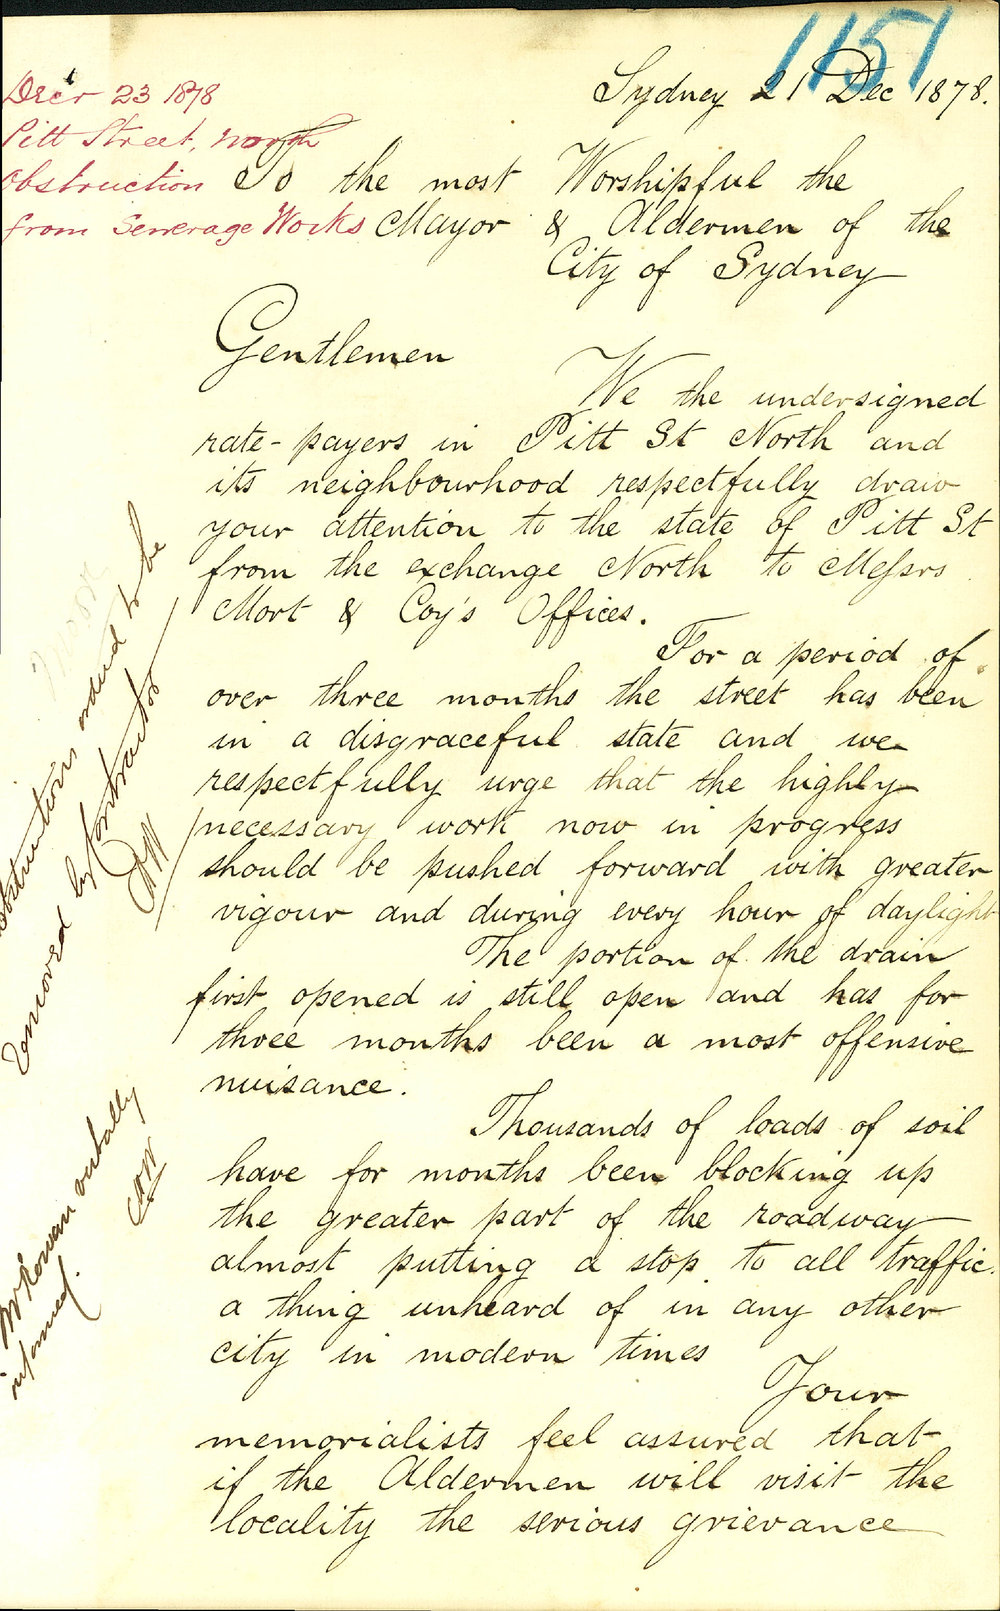 1151
Sydney 21 Dec 1878.
Dec'r 23 1878
Pitt Street, North
Obstruction
from Sewerage Works
To the most Worshipful the
Mayor & Aldermen of the
City of Sydney
Gentlemen
We the undersigned
rate-payers in Pitt St North and
its neighbourhood respectfully draw
your attention to the state of Pitt St
from the exchange North to Messrs
Mort & Coy's Offices.
For a period of
over three months the street has been
in a disgraceful state and we
respectfully urge that the highly
necessary work now in progress
should be pushed forward with greater
vigour and during every hour of daylight
The portion of the drain
first opened is still open and has for
three months been a most offensive
nuisance.
Thousands of loads of soil
have for months been blocking up
the greater part of the roadway
almost putting a stop to all traffic.
a thing unheard of in any other
city in modern times
Your
memorialists feel assured that
if the Aldermen will visit the
locality the serious grievance
Obstructions ordered to be
removed by Contractor
Mr Rowan verbally
informed.